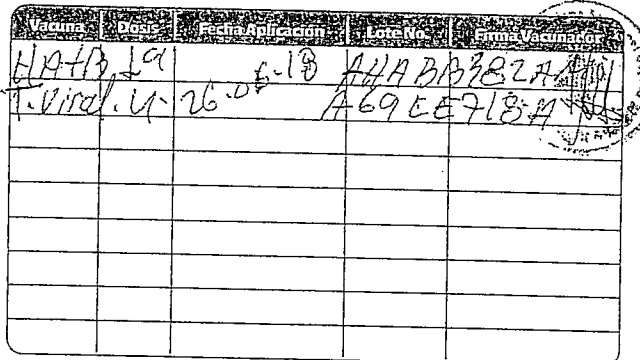 Vacuna Dosis Fecha Aplicación Lote No. Firma Vacunador
HA+B 1a AHABB382A
T. Viral. U. 26-05-18 A69EE718A